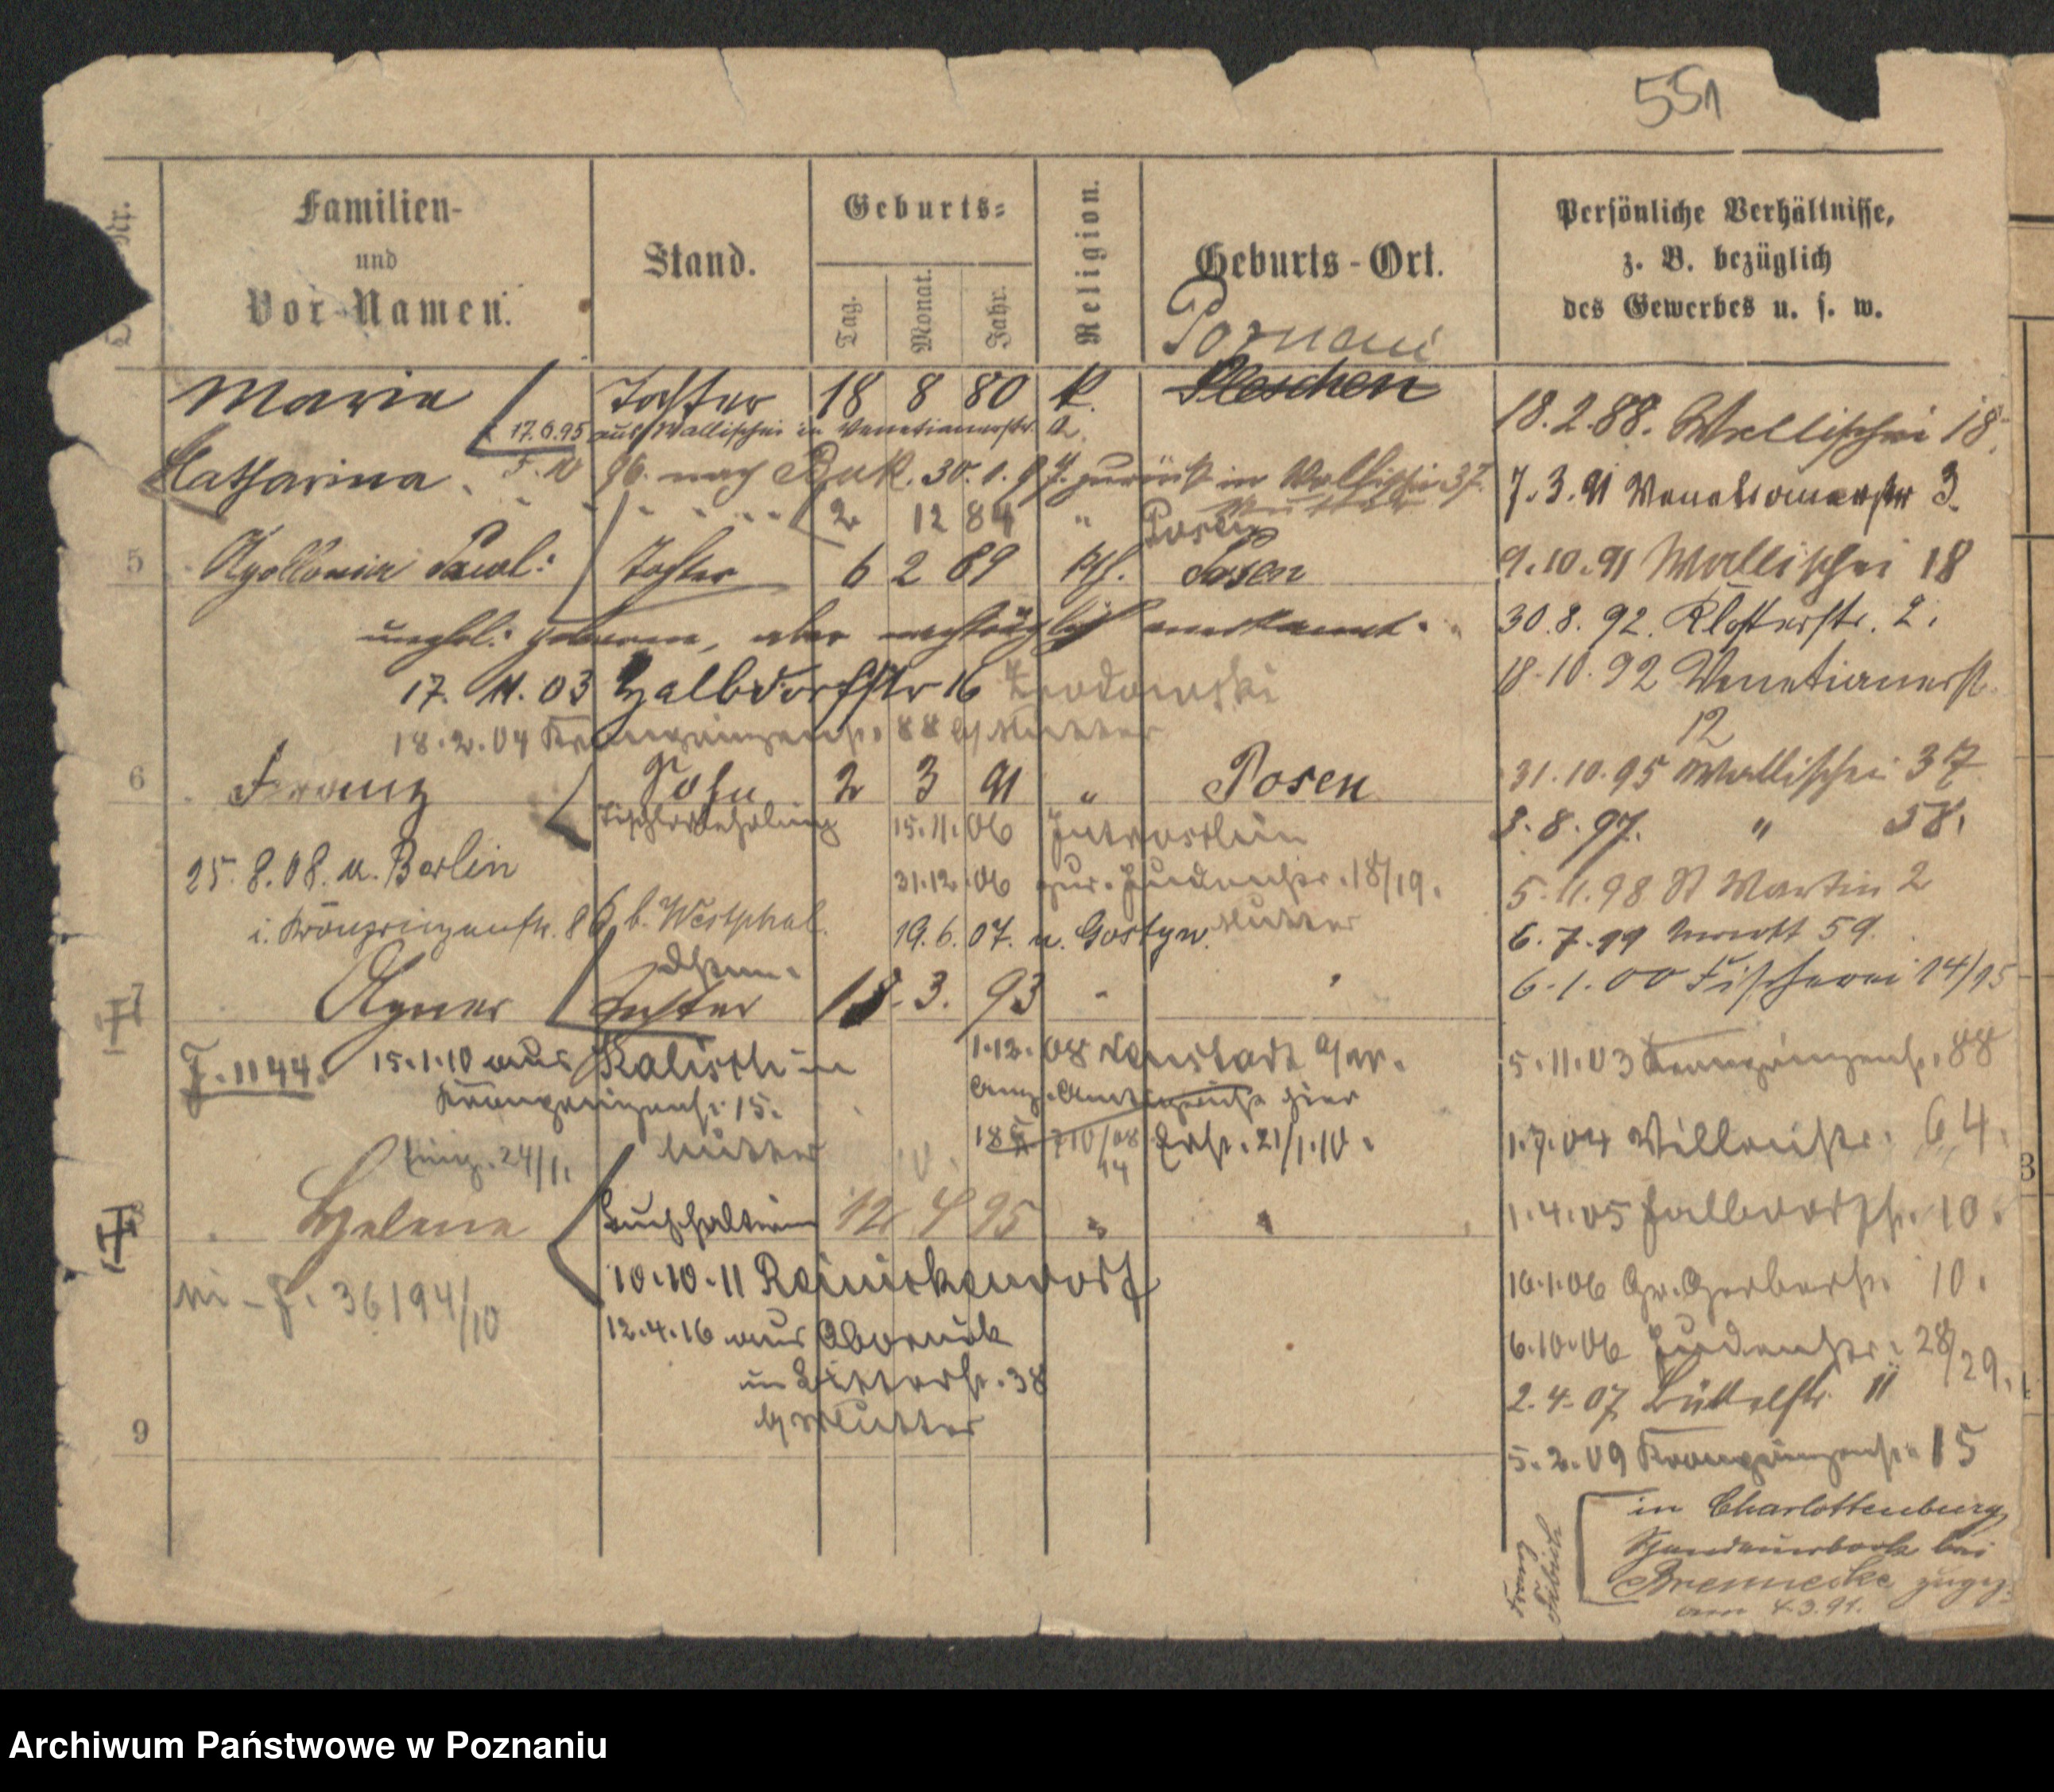 551
Nr.
Familien-
und
Vor-Namen.
Stand.
Geburts-
Tag.
Monat.
Jahr.
Religion.
Geburts-Ort.
Persönliche Verhältnisse,
z. B. bezüglich
des Gewerbes u. s. w.
Poznani
Maria Tochter 18 8 80 k. Pleschen
17.6.95 aus Wallischei in Venetianerstr. 2
Katharina 5.10 96. nach Buk. 30.1.97. zurück in Wallischei 37.
Mutter
2 12 84 " Posen
5 Apollonia Tochter 6 2 89 kth. Posen
unehl: geboren, aber nachträglich anerkannt.
17. 11. 03 Halbdorfstr 16
18.2.04 Kronprinzenstr. 88 b/ Mutter
6 Franz Sohn 2 3 91 " Posen
Tischlerlehrling 15.11.06 Jutroschin
25.8.08. n. Berlin
31.12.06 zur. Judenstr. 18/19.
Mutter
i. Kronprinzenstr. 86 b. Westphal.
19.6.07. n. Gostyn.
7 Agnes Tochter 18. 3. 93 "
J. 1144. 15.1.10 aus Kalisch in
Kronprinzenstr. 15.
Mutter
24/1.
1.12.08 Neustadt
hier
710/08
14
21/1.10.
8 Helene Buchhalterin 12 4 95 "
10.10.11 Reinickendorf
36194/10
12.4.16 aus Abornik
in Ritterstr. 38
b/ Mutter
9
18.2.88. Wallischei 18
7.3.91 Venetianerstr 3.
9.10.91 Wallischei 18
30.8.92. Klosterstr. 2.
18.10.92 Venetianerst.
12
31.10.95 Wallischei 37
3.8.97. " 58.
5.11.98 St Martin 2
6.7.99 Markt 59.
6.1.00 Fischerei 14/15
5.11.03 Kronprinzenstr. 88
1.7.04 Villenstr. 64.
1.4.05 Halbdorfstr. 10.
10.1.06 Gr. Gerberstr. 10.
6.10.06 Judenstr. 28/29.
2.4.07 Büttelstr. 11
5.2.09 Kronprinzenstr. 15
in Charlottenburg
bei
Brennecke
am 4.3.91.
Franz